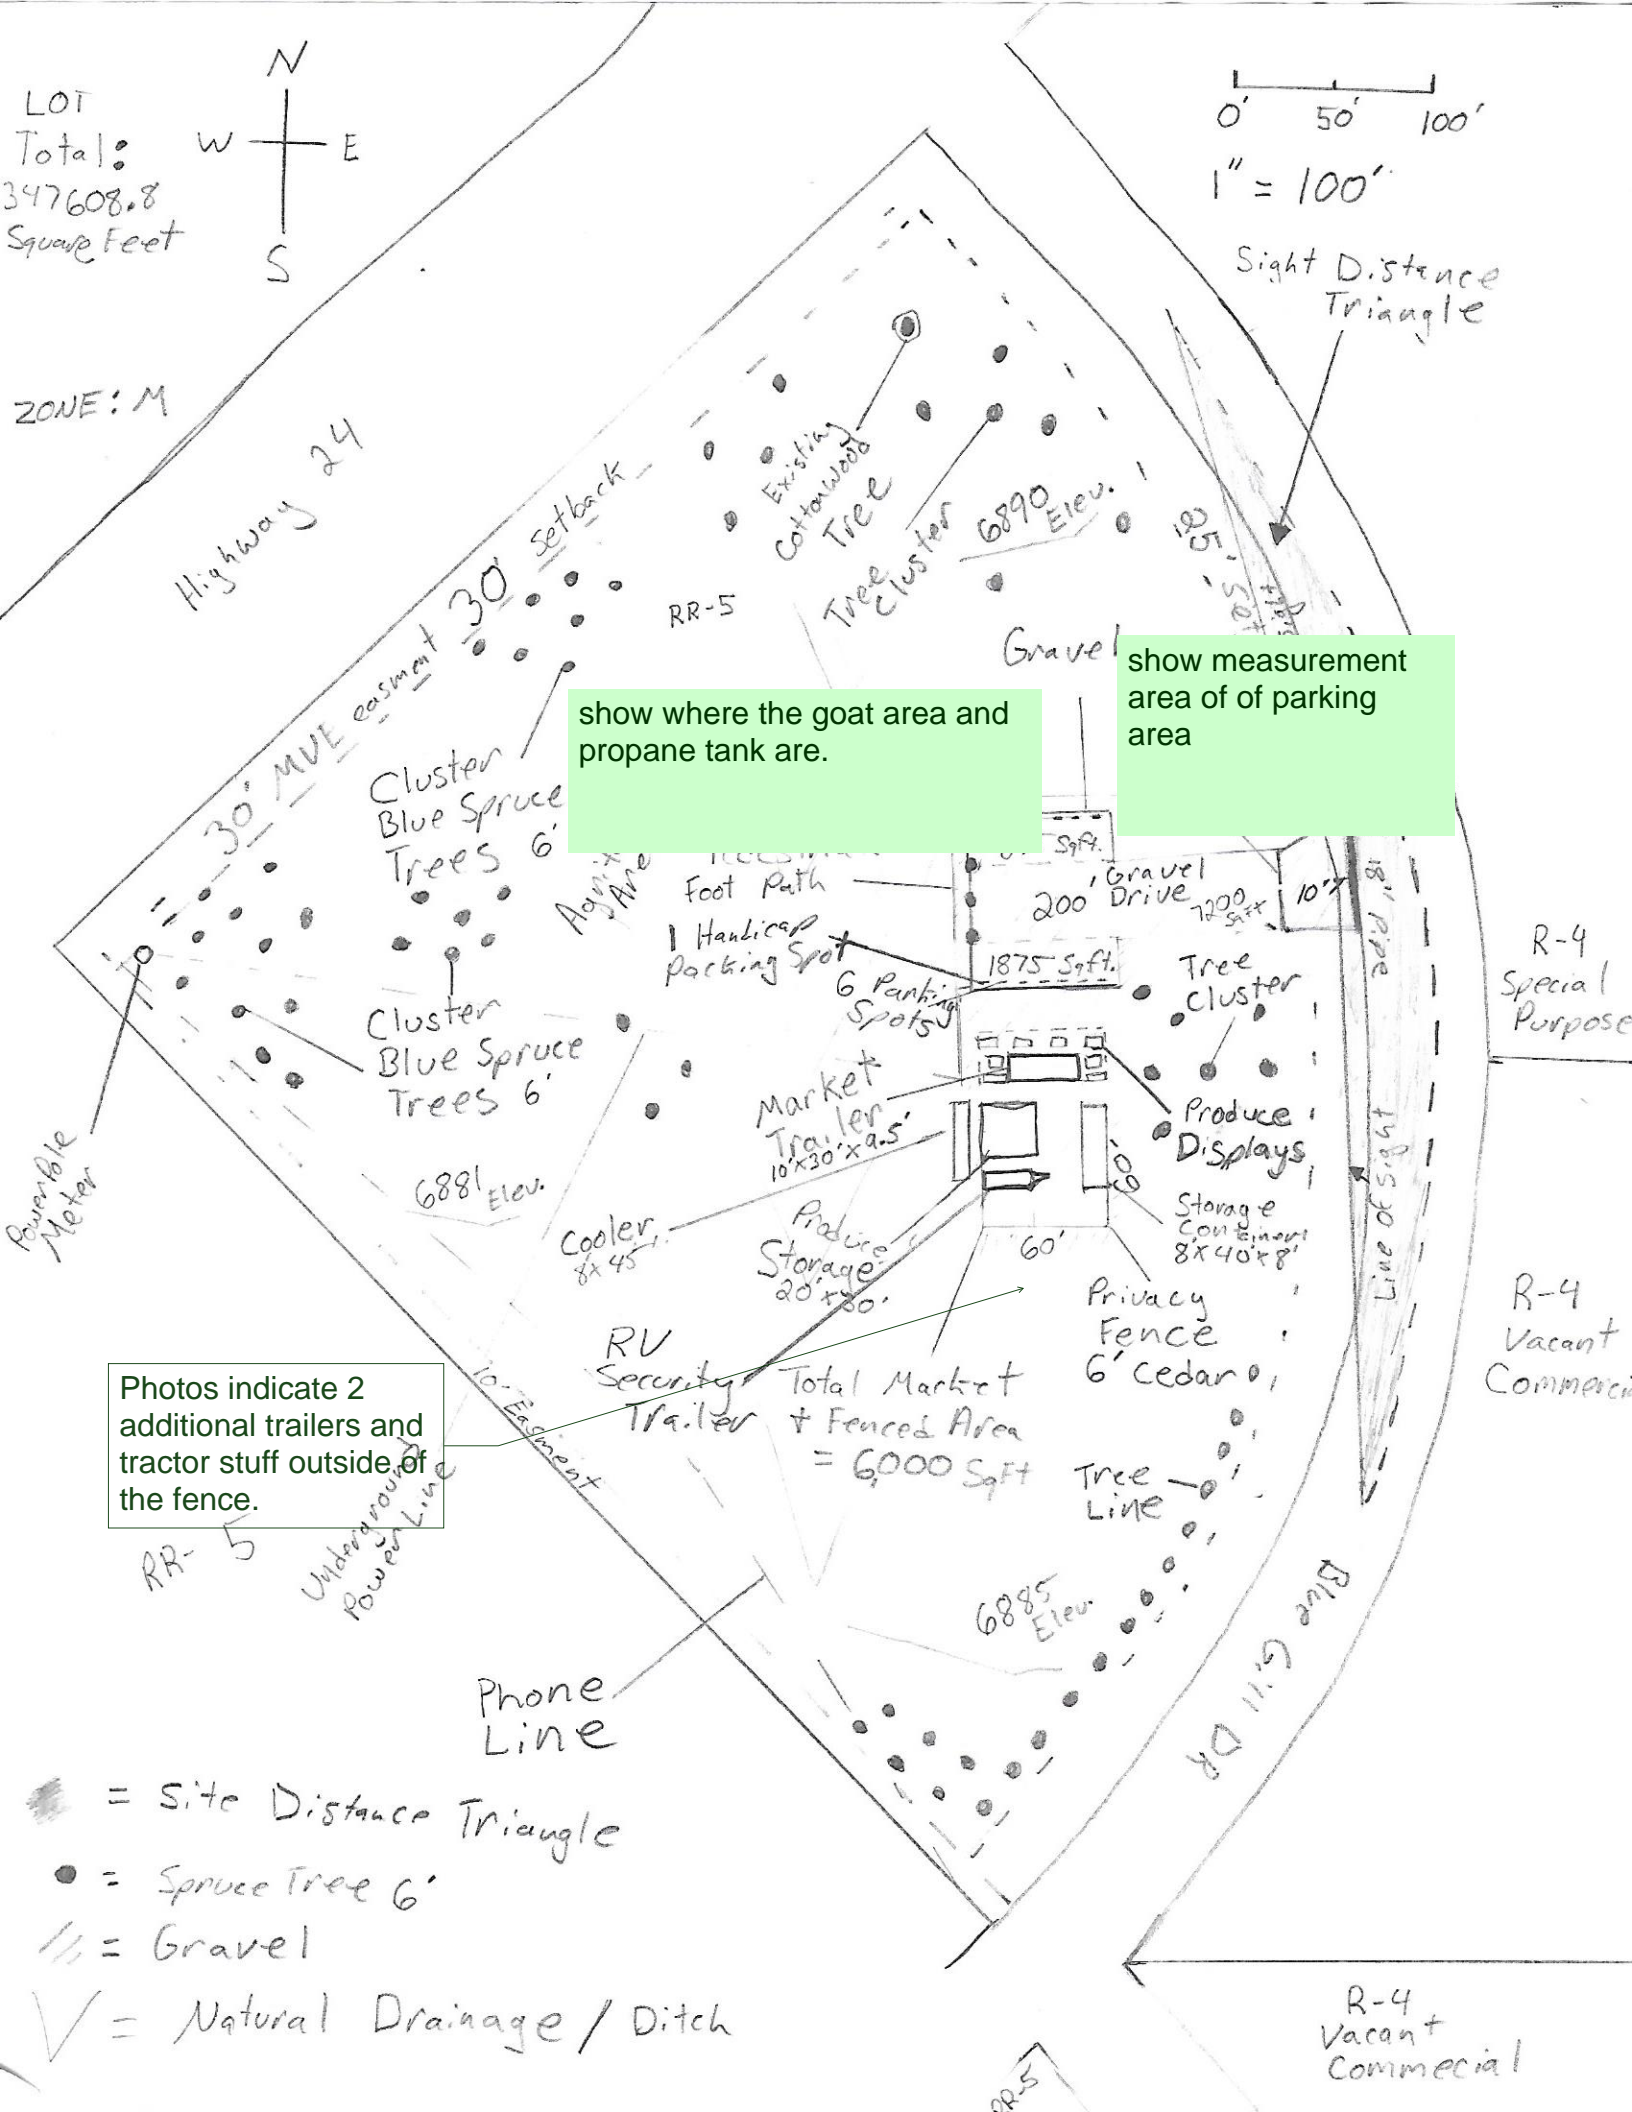 N
W
E
S
LOT
Total:
347608.8
Square Feet
ZONE: M
0' 50' 100'
1" = 100'
Sight Distance
Triangle
Highway 24
30' MVE easment 30' setback
Existing
Cottonwood
Tree
Tree
Cluster
6890
Elev.
25'
RR-5
Gravel
show measurement
area of of parking
area
show where the goat area and
propane tank are.
Cluster
Blue Spruce
Trees 6'
Sqft.
Foot Path
200' Gravel
Drive
7200
Sqft
18" pipe
1 Handicap
Parking Spot
1875 Sqft.
6 Parking
Spots
Tree
Cluster
R-4
Special
Purpose
Cluster
Blue Spruce
Trees 6'
Power Pole
Meter
Market
Trailer
10'x30'x9.5'
Produce
Displays
60'
6881 Elev.
Cooler
8x45'
Produce
Storage
Storage
8'x40'x8'
60'
Line of Sight
R-4
Vacant
Privacy
Fence
6' Cedar
RV
Security
Trailer
Total Market
+ Fenced Area
= 6,000 SqFt
Photos indicate 2
additional trailers and
tractor stuff outside of
the fence.
10' Easment
Underground
Power Line
RR-5
Tree
Line
6885
Elev.
Blue Gill DR
Phone
Line
= Site Distance Triangle
= Spruce Tree 6'
= Gravel
= Natural Drainage / Ditch
R-4
Vacant
Commecial
RR-5